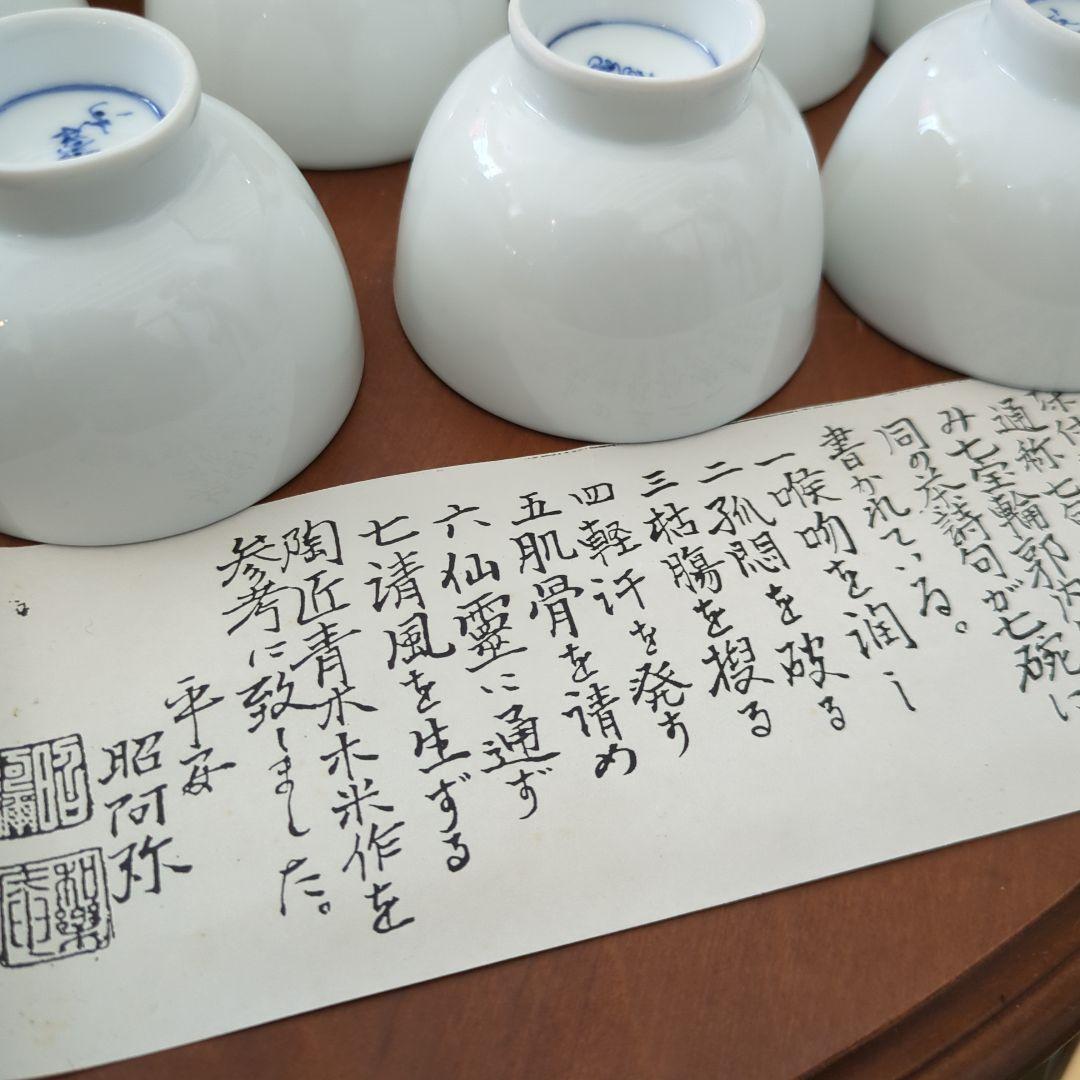 通称七
み七宝輪郭内
同の茶詩句が七碗に
書かれている。
一喉吻を潤し
二孤悶を破る
三枯腸を搜る
四軽汗を発す
五肌骨を請め
六仙靈に通ず
七請風を生ずる
陶匠青木木米作を
参考に致しました。
平安
昭阿弥